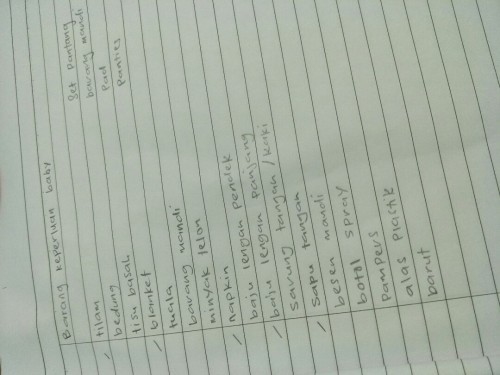 Barang keperluan baby
tilam
bedung
tisu basah
blanket
tuala
barang mandi
minyak telon
napkin
baju lengan pendek
baju lengan panjang
sarung tangan / kaki
sapu tangan
besen mandi
botol spray
pampers
alas plastik
barut
Set pantang
barang mandi
Pad
Panties